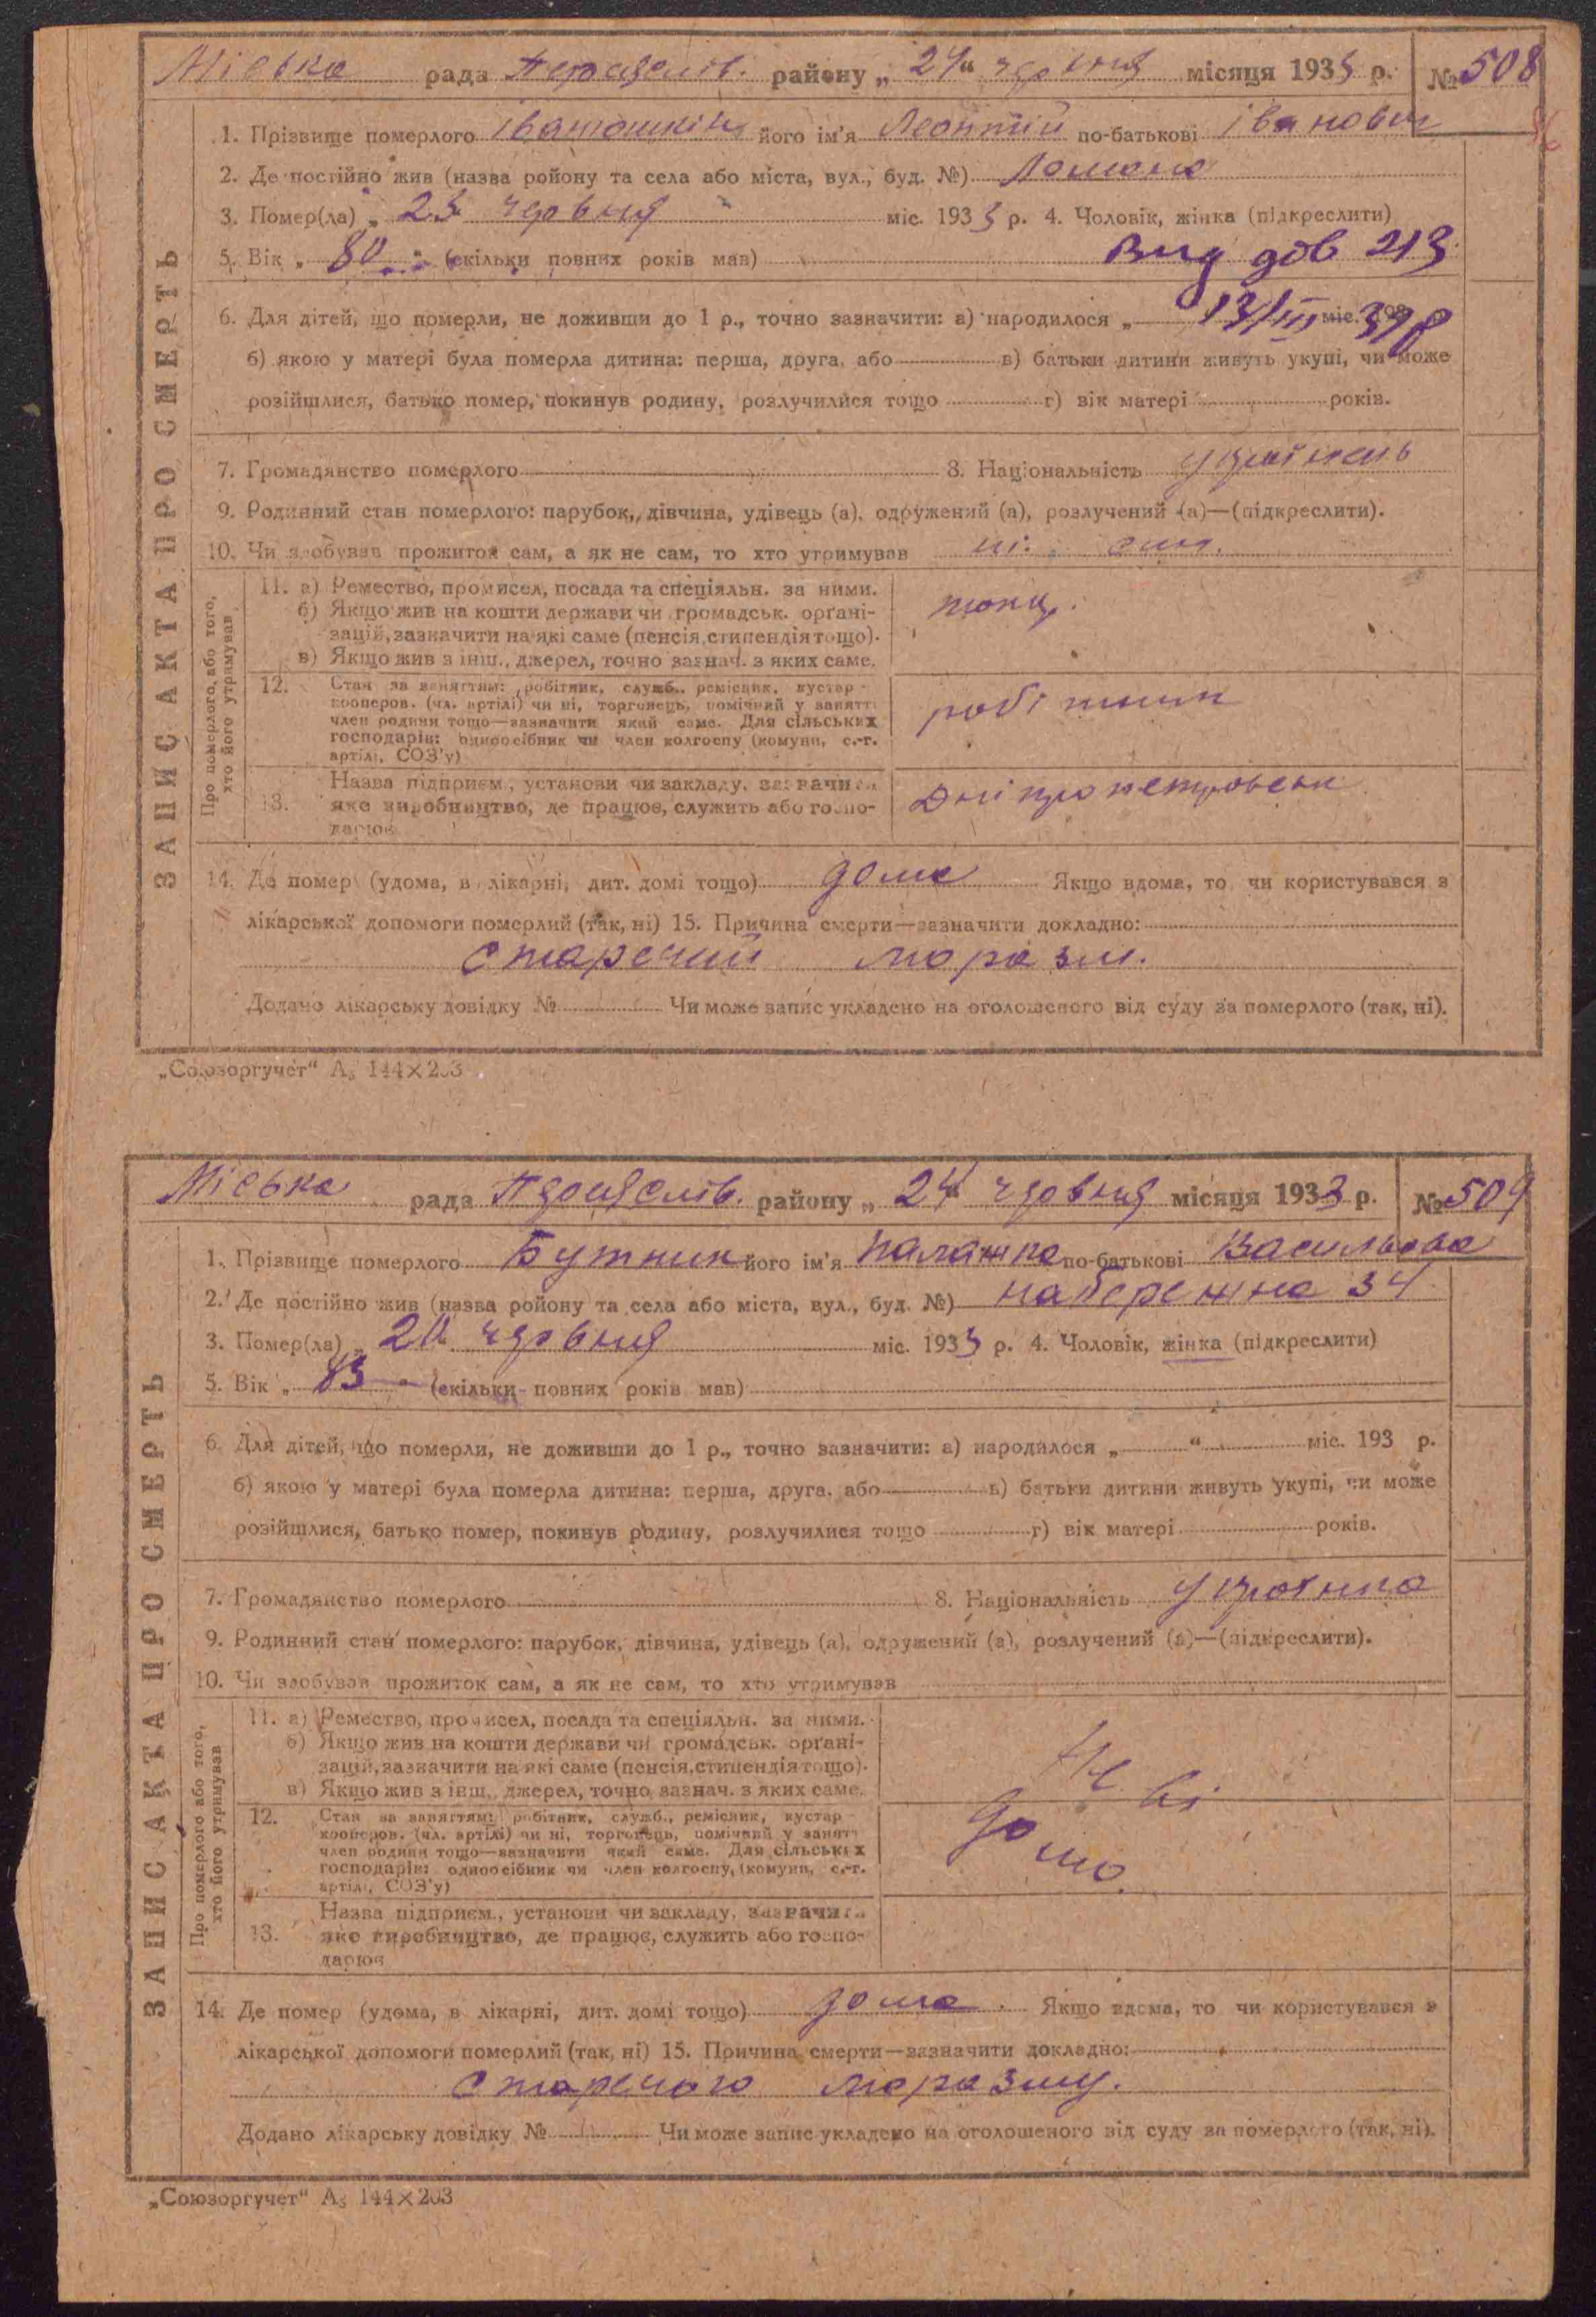 Міська рада район у „ 24 “ червня місяця 1933 р. № 508
1. Прізвище померлого Іванюшкін його ім'я Леонтій по-батькові Іванович
2. Де постійно жив (назва району та села або міста, вул., буд. №)
3. Помер(ла) „ 23 червня міс. 1933 р. 4. Чоловік, жінка (підкреслити)
5. Вік „ 80 “ (скільки повних років мав) Вид дов 213
6. Для дітей, що померли, не доживши до 1 р., точно зазначити: а) народилося „ 13/III міс. 193 р
б) якою у матері була померла дитина: перша, друга, або в) батьки дитини живуть укупі, чи може
розійшлися, батько помер, покинув родину, розлучилися тощо г) вік матері років.
7. Громадянство померлого 8. Національність українець
9. Родинний стан померлого: парубок, дівчина, удівець (а), одружений (а), розлучений (а)—(підкреслити).
10. Чи здобував прожиток сам, а як не сам, то хто утримував ні. син.
ЗАПИС АКТА ПРО СМЕРТЬ
Про померлого, або того, хто його утримував
11. а) Ремество, промисел, посада та спеціяльн. за ними.
б) Якщо жив на кошти держави чи громадськ. органі-
зацій, зазначити на які саме (пенсія, стипендія тощо).
в) Якщо жив з інш., джерел, точно зазнач. з яких саме.
12. Стан за заняттям: робітник, служб., ремісник, кустар -
кооперов. (чл. артілі) чи ні, торговець, помічний у занятті
член родини тощо—зазначити який саме. Для сільських
господарів: одноосібник чи член колгоспу (комуни, с.-г.
артілі, СОЗ'у)
робітник
13. Назва підприєм., установи чи закладу, зазначити
яке виробництво, де працює, служить або госпо-
дарює
Дніпропетровськ
14. Де помер (удома, в лікарні, дит. домі тощо) дома Якщо вдома, то чи користувався з
лікарської допомоги померлий (так, ні) 15. Причина смерти—зазначити докладно:
старечий маразм.
Додано лікарську довідку № Чи може запис укладено на оголошеного від суду за померлого (так, ні).
„Союзоргучет“ А₅ 144×203
Міська рада району „ 24 “ червня місяця 1933 р. № 509
1. Прізвище померлого Бутник його ім'я Палажка по-батькові Васильовна
2. Де постійно жив (назва району та села або міста, вул., буд. №) набережна 34
3. Помер(ла) „ червня міс. 1933 р. 4. Чоловік, жінка (підкреслити)
5. Вік „ 83 “ (скільки повних років мав)
6. Для дітей, що померли, не доживши до 1 р., точно зазначити: а) народилося „ “ міс. 193 р.
б) якою у матері була померла дитина: перша, друга, або в) батьки дитини живуть укупі, чи може
розійшлися, батько помер, покинув родину, розлучилися тощо г) вік матері років.
7. Громадянство померлого 8. Національність українка
9. Родинний стан померлого: парубок, дівчина, удівець (а), одружений (а), розлучений (а)—(підкреслити).
10. Чи здобував прожиток сам, а як не сам, то хто утримував
ЗАПИС АКТА ПРО СМЕРТЬ
Про померлого або того, хто його утримував
11. а) Ремество, промисел, посада та спеціяльн. за ними.
б) Якщо жив на кошти держави чи громадськ. органі-
зацій, зазначити на які саме (пенсія, стипендія тощо).
в) Якщо жив з інш., джерел, точно зазнач. з яких саме.
12. Стан за заняттям: робітник, служб., ремісник, кустар -
кооперов. (чл. артілі) чи ні, торговець, помічний у занятті
член родини тощо—зазначити який саме. Для сільських
господарів: одноосібник чи член колгоспу, (комуни, с.-г.
артілі, СОЗ'у)
Не ві
домо.
13. Назва підприєм., установи чи закладу, зазначити
яке виробництво, де працює, служить або госпо-
дарює
14. Де помер (удома, в лікарні, дит. домі тощо) дома. Якщо вдома, то чи користувався з
лікарської допомоги померлий (так, ні) 15. Причина смерти—зазначити докладно:
старечого маразму.
Додано лікарську довідку № Чи може запис укладено на оголошеного від суду за померлого (так, ні).
„Союзоргучет“ А₅ 144×203